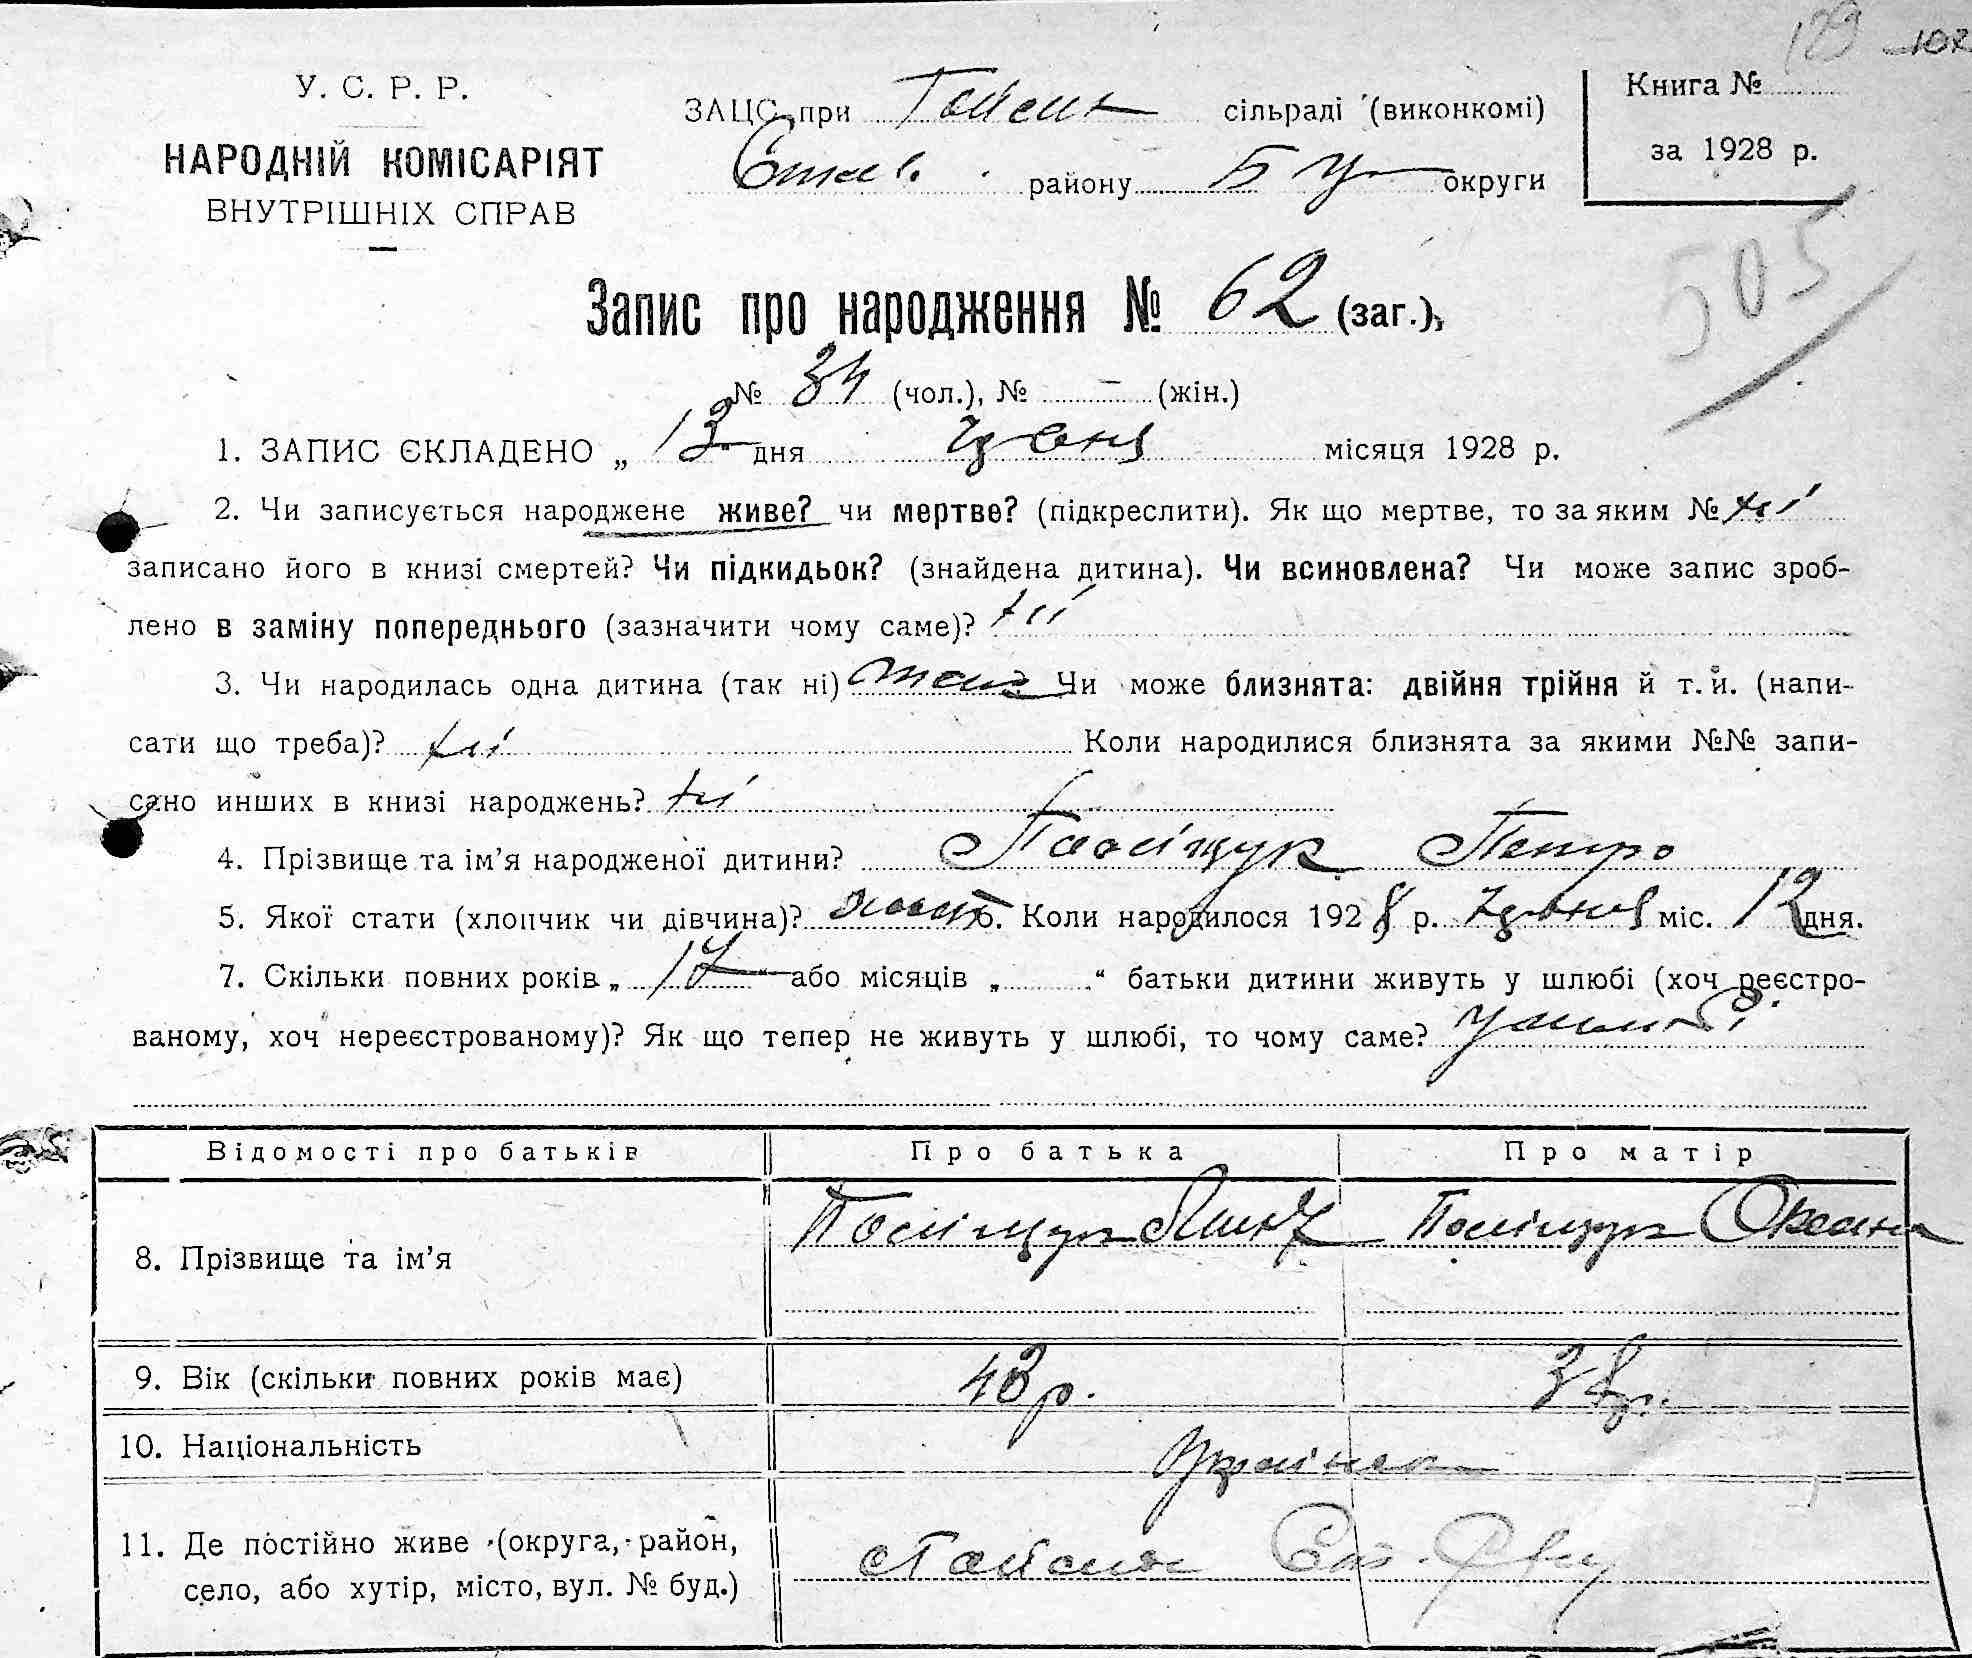 102
У. С. Р. Р.
НАРОДНІЙ КОМІСАРІЯТ
ВНУТРІШНІХ СПРАВ
ЗАЦС при сільраді (виконкомі)
Став. району Б Ц округи
Книга №
за 1928 р.
505
Запис про народження № 62 (заг.),
№ 34 (чол.), № – (жін.)
1. ЗАПИС ЄКЛАДЕНО „ 13 " дня місяця 1928 р.
2. Чи записується народжене живе? чи мертве? (підкреслити). Як що мертве, то за яким № ні
записано його в книзі смертей? Чи підкидьок? (знайдена дитина). Чи всиновлена? Чи може запис зроб-
лено в заміну попереднього (зазначити чому саме)? ні
3. Чи народилась одна дитина (так ні) так Чи може близнята: двійня трійня й т. и. (напи-
сати що треба)? ні Коли народилися близнята за якими №№ запи-
сано инших в книзі народжень? ні
4. Прізвище та ім'я народженої дитини? Поліщук Петро
5. Якої стати (хлопчик чи дівчина)? Коли народилося 1928 р. міс. 12 дня.
7. Скільки повних років „ 17 " або місяців „ " батьки дитини живуть у шлюбі (хоч реєстро-
ваному, хоч нереєстрованому)? Як що тепер не живуть у шлюбі, то чому саме? у шлюбі
Відомості про батьків Про батька Про матір
8. Прізвище та ім'я Поліщук Поліщук Оксана
9. Вік (скільки повних років має) 43 р. 38 р.
10. Національність Українск
11. Де постійно живе (округа, район,
село, або хутір, місто, вул. № буд.)